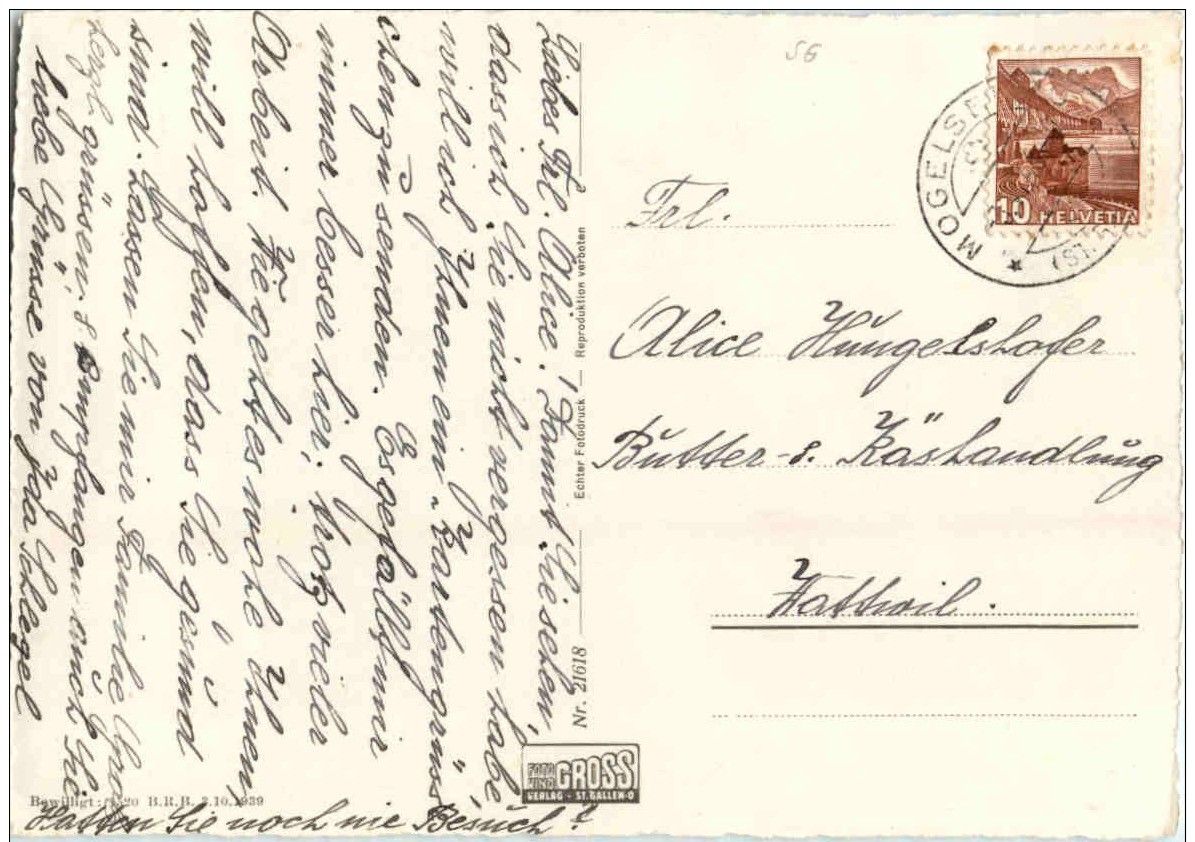 Liebes Frl. Alice! Damit Sie sehen,
dass ich Sie nicht vergessen habe
will ich Ihnen ein Kartengrüss-
chen zu senden. Es gefällt mir
immer besser hier, trotz vieler
Arbeit. Wie geht es wohl Ihnen,
will hoffen, dass Sie gesund
sind. Lassen Sie mir Familie
grüssen. & Empfangen auch Sie
liebe Grüsse von Ida Schlegel
Hatten Sie noch nie Besuch?
Bewilligt: 7820 B.R.B. 3.10.1939
Nr. 21618
Echter Fotodruck — Reproduktion verboten
FOTO
GROSS
VERLAG - ST. GALLEN-O
SG
MOGELSBERG
(ST.
10 HELVETIA
Frl.
Alice Hungelshofer
Butter- & Käshandlung
Wattwil.